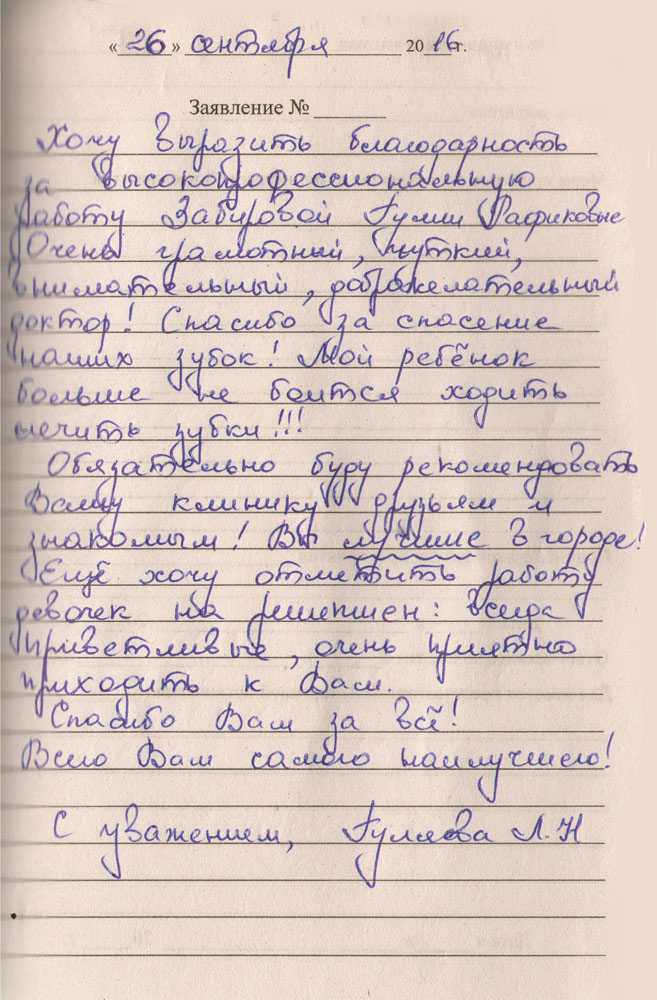 «26» сентября 2016 г.
Заявление №
Хочу выразить благодарность
за высокопрофессиональную
работу Забировой Гулии Рафиковые
Очень грамотный, чуткий,
внимательный, доброжелательный
доктор! Спасибо за спасение
наших зубок! Мой ребёнок
больше не боится ходить
лечить зубки!!!
Обязательно буду рекомендовать
Вашу клинику друзьям и
знакомым! Вы лучшие в городе!
Ещё хочу отметить работу
девочек на решепшен: всегда
приветливые, очень приятно
приходить к Вам.
Спасибо Вам за всё!
Всего Вам самого наилучшего!
С уважением, Гуляева Л.Н